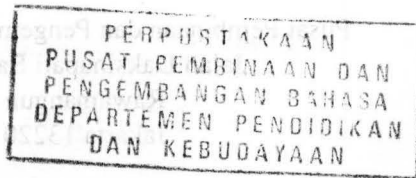 PERPUSTAKAAN
PUSAT PEMBINAAN DAN
PENGEMBANGAN BAHASA
DEPARTEMEN PENDIDIKAN
DAN KEBUDAYAAN